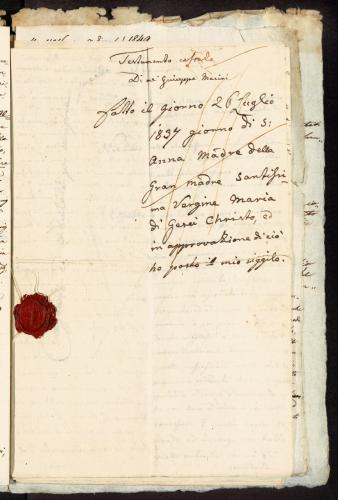 1840
Testamento
Di me Giuseppe Marini
fatto il giorno 26 Luglio
1837 giorno di S:
Anna Madre della
Gran madre Santissi-
ma Vergine Maria
di Gesù Christo, ed
in approvazione di ciò
ho posto il mio siggilo.